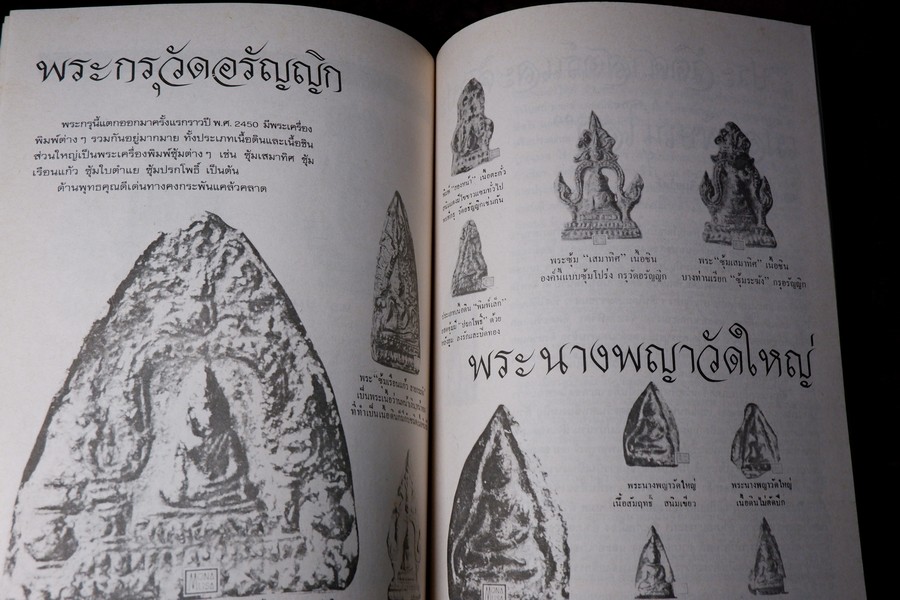 พระกรุวัดอรัญญิก
พระกรุนี้แตกออกมาครั้งแรกราวปี พ.ศ. 2450 มีพระเครื่อง
พิมพ์ต่าง ๆ รวมกันอยู่มากมาย ทั้งประเภทเนื้อดินและเนื้อชิน
ส่วนใหญ่เป็นพระเครื่องพิมพ์ซุ้มต่าง ๆ เช่น ซุ้มเสมาทิศ ซุ้ม
เรือนแก้ว ซุ้มใบตำแย ซุ้มปรกโพธิ์ เป็นต้น
ด้านพุทธคุณดีเด่นทางคงกระพันแคล้วคลาด
พระ "ซุ้มเรือนแก้ว
เป็นพระเนื้อว่าน
ที่ทำเป็นเนื้อดิน
เนื้อตะกั่ว
วัดอรัญญิกเช่นกัน
"พิมพ์เล็ก"
"ปรกโพธิ์" ด้วย
ลงรักและปิดทอง
พระซุ้ม "เสมาทิศ" เนื้อชิน
องค์นี้แบบซุ้มโปร่ง กรุวัดอรัญญิก
พระ "ซุ้มเสมาทิศ" เนื้อชิน
บางท่านเรียก "ซุ้มระฆัง" กรุอรัญญิก
พระนางพญาวัดใหญ่
พระนางพญาวัดใหญ่
เนื้อสัมฤทธิ์ สนิมเขียว
พระนางพญาวัดใหญ่
เนื้อดินไม่ตัดปีก